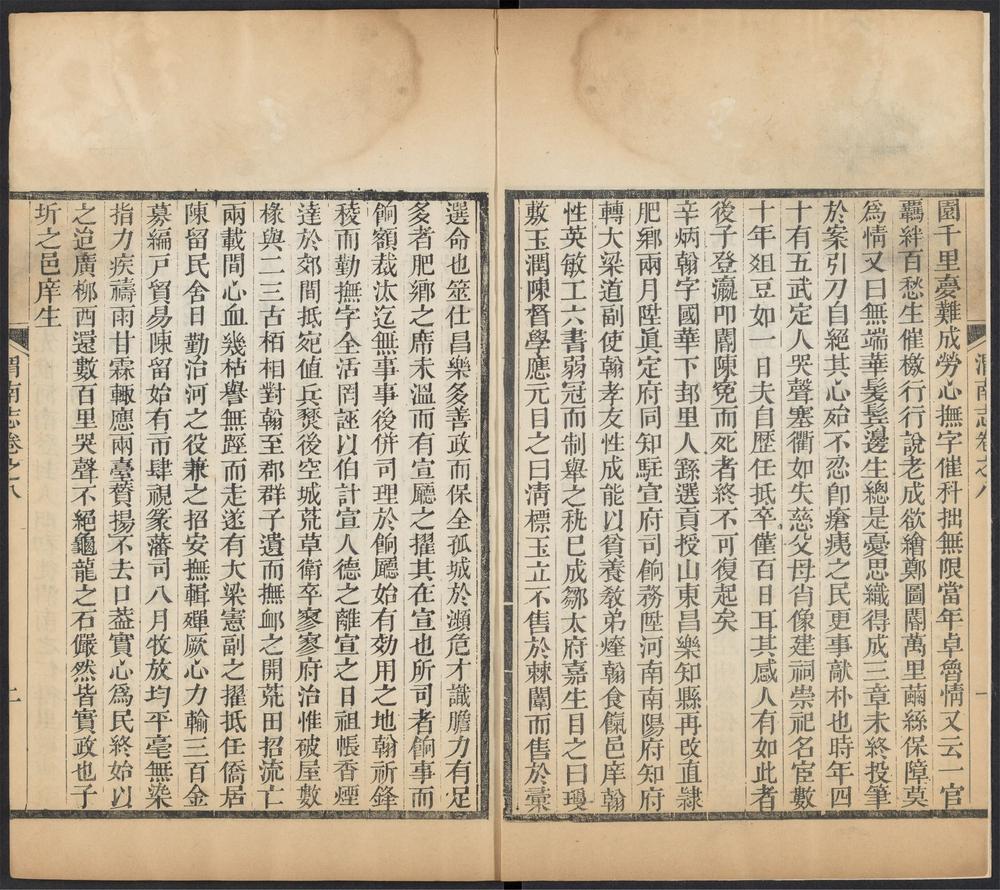 園千里憂難成勞心撫字催科拙無限當年卓魯情又云一官
羈絆百愁生催檄行行說老成欲繪鄭圖閽萬里繭絲保障莫
爲情又曰無端華髮鬂邊生總是憂思織得成三章未終投筆
於案引刀自絕其心殆不忍卽瘡痍之民更事獻朴也時年四
十有五武定人哭聲塞衢如失慈父母肖像建祠崇祀名宦數
十年俎豆如一日夫自歴任抵卒僅百日耳其感人有如此者
後子登瀛叩閽陳寃而死者終不可復起矣
辛炳翰字國華下邽里人繇選貢授山東昌樂知縣再改直隷
肥鄉兩月陞眞定府同知駐宣府司餉務陞河南南陽府知府
轉大梁道副使翰孝友性成能以貧養敎弟煃翰食餼邑庠翰
性英敏工六書弱冠而制舉之秇巳成鄒太府嘉生目之曰瓊
敷玉潤陳督學應元目之曰淸標玉立不售於棘闈而售於彙
渭南志卷之八
選命也筮仕昌樂多善政而保全孤城於瀕危才識膽力有足
多者肥鄉之席未溫而有宣廳之擢其在宣也所司者餉事而
餉額裁汰迄無事事後併司理於餉廳始有効用之地翰祈鋒
稜而勤撫字全活罔誣以伯計宣人德之離宣之日祖帳香煙
達於郊間抵宛値兵燹後空城荒草衛卒寥寥府治惟破屋數
椽與二三古栢相對翰至郡群孑遺而撫卹之開荒田招流亡
兩載間心血幾枯譽無脛而走遂有大梁憲副之擢抵任僑居
陳留民舍日勤治河之役兼之招安撫輯殫厥心力輸三百金
募編戸貿易陳留始有市肆視篆藩司八月牧放均平毫無染
指力疾禱雨甘霖輙應兩臺贊揚不去口葢實心爲民終始以
之迨廣柳西還數百里哭聲不絕龜龍之石儼然皆實政也子
圻之邑庠生
渭南志卷之八